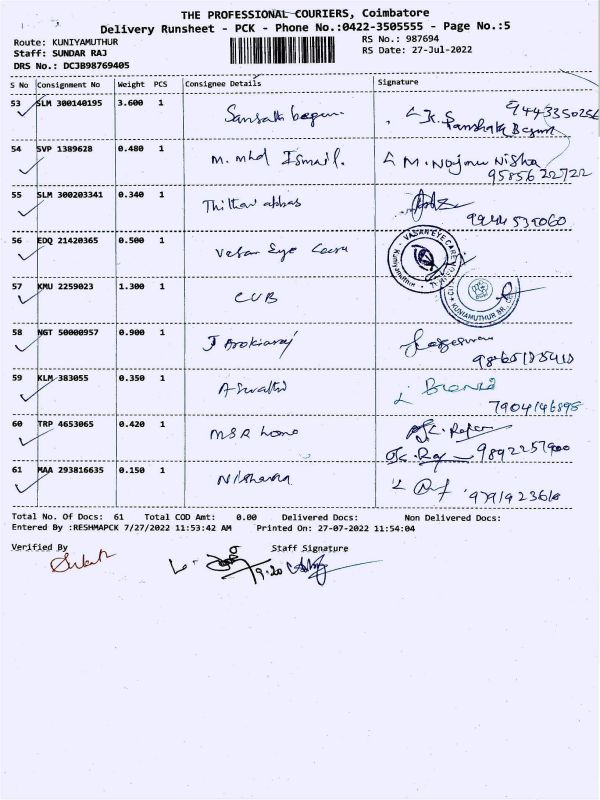 THE PROFESSIONAL COURIERS, Coimbatore
Delivery Runsheet - PCK - Phone No.:0422-3505555 - Page No.:5
Route: KUNIYAMUTHUR RS No.: 987694
Staff: SUNDAR RAJ RS Date: 27-Jul-2022
DRS No.: DCJB98769405
S No Consignment No Weight PCS Consignee Details Signature
53 SLM 300140195 3.600 1
54 SVP 1389628 0.480 1 M. Mhd Ismail. M. Najmu Nisha
9585622722
55 SLM 300203341 0.340 1 abbas
9944539060
56 EDQ 21420365 0.500 1 Vasan Eye Care VASAN EYE CARE Kuniyamuthur
57 KMU 2259023 1.300 1 CUB KUNIAMUTHUR BR.
58 NGT 50000957 0.900 1 J Arokiaraj
59 KLM 383055 0.350 1 Aswathi
7904146898
60 TRP 4653065 0.420 1 MSR home
9892257900
61 MAA 293816635 0.150 1 Nishana
Total No. Of Docs: 61 Total COD Amt: 0.00 Delivered Docs: Non Delivered Docs:
Entered By :RESHMAPCK 7/27/2022 11:53:42 AM Printed On: 27-07-2022 11:54:04
Verified By Staff Signature
9.20